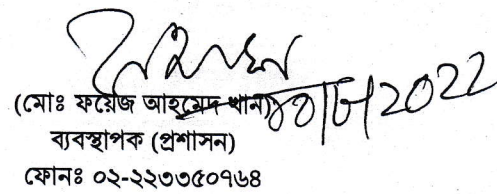 (মোঃ ফয়েজ আহমেদ খান)
ব্যবস্থাপক (প্রশাসন)
ফোনঃ ০২-২২৩৩৫০৭৬৪